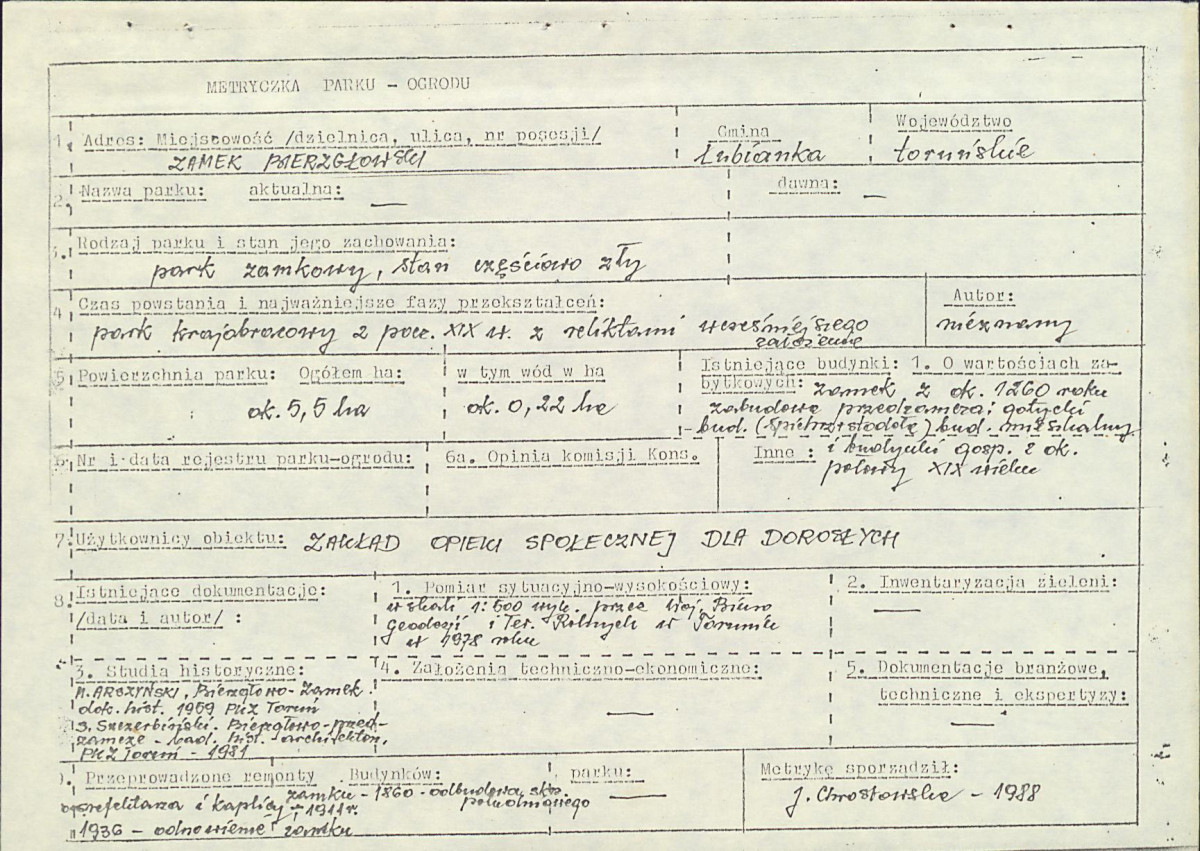 METRYCZKA PARKU - OGRODU
1. Adres: Miejscowość /dzielnica, ulica, nr posesji/
ZAMEK BIERZGŁOWSKI
Gmina
Łubianka
Województwo
toruńskie
2. Nazwa parku: aktualna: —
dawna: —
3. Rodzaj parku i stan jego zachowania:
park zamkowy, stan częściowo zły
4 Czas powstania i najważniejsze fazy przekształceń:
park krajobrazowy z pocz. XIX w. z reliktami wcześniejszego
założenia
Autor:
nieznany
5 Powierzchnia parku: Ogółem ha:
ok. 5,5 ha
w tym wód w ha
ok. 0,22 ha
Istniejące budynki: 1. O wartościach za-
bytkowych: zamek z ok. 1260 roku
zabudowa przedzamcza: gotycki
bud. (spichrz + stodoła) bud. mieszkalny
Inne : i budynki gosp. z ok.
połowy XIX wieku
6. Nr i data rejestru parku-ogrodu:
6a. Opinia komisji Kons.
7. Użytkownicy obiektu: ZAKŁAD OPIEKI SPOŁECZNEJ DLA DOROSŁYCH
8. Istniejące dokumentacje:
/data i autor/ :
1. Pomiar sytuacyjno-wysokościowy:
w skali 1:500 wyk. przez Woj. Biuro
Geodezji i Ter. Rolnych w Toruniu
w 1978 roku
2. Inwentaryzacja zieleni:
—
3. Studia historyczne:
M. ARSZYŃSKI, Bierzgłowo-Zamek
dok. hist. 1959 PKZ Toruń
J. Szczerbiński. Bierzgłowo-przed-
zamcze - bad. hist. architekton.
PKZ Toruń - 1981
4. Założenia techniczno-ekonomiczne:
—
5. Dokumentacje branżowe,
techniczne i ekspertyzy:
—
9. Przeprowadzone remonty Budynków:
zamku - 1860 - odbudowa skrz.
południowego
refektarza i kaplicy - 1911 r.
1936 - odnowienie zamku
parku:
—
Metrykę sporządził:
J. Chrostowska - 1988